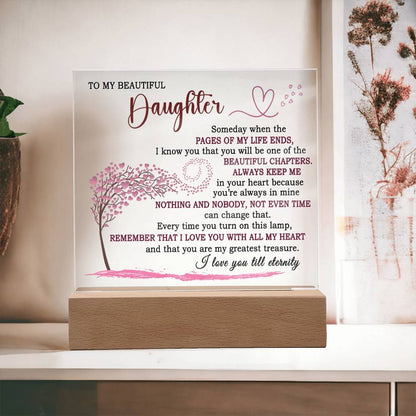 TO MY BEAUTIFUL
Daughter
Someday when the
PAGES OF MY LIFE ENDS,
I know you that you will be one of the
BEAUTIFUL CHAPTERS.
ALWAYS KEEP ME
in your heart because
you're always in mine
NOTHING AND NOBODY, NOT EVEN TIME
can change that.
Every time you turn on this lamp,
REMEMBER THAT I LOVE YOU WITH ALL MY HEART
and that you are my greatest treasure.
I love you till eternity